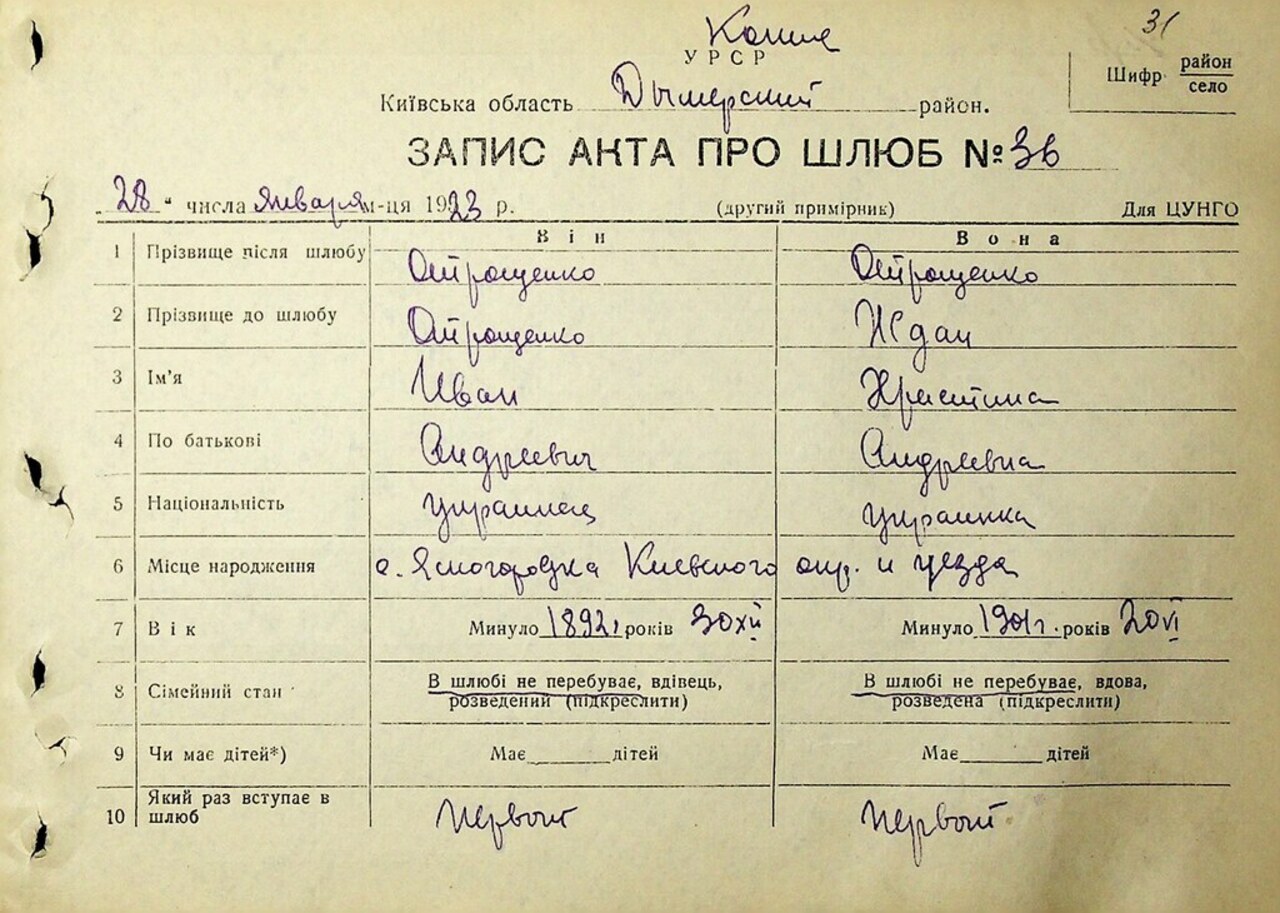 31
Копие
УРСР
Шифр район
село
Київська область Дымерский район.
ЗАПИС АКТА ПРО ШЛЮБ № 36
„28“ числа января м-ця 1923 р. (другий примірник) Для ЦУНГО
Він Вона
1 Прізвище після шлюбу Отрощенко Отрощенко
2 Прізвище до шлюбу Отрощенко Ждан
3 Ім'я Иван Христина
4 По батькові Андреевич Андреевна
5 Національність украинец украинка
6 Місце народження с. Ясногородка Киевского окр. и уезда
7 Вік Минуло 1892г років 30XII Минуло 1901г. років 20VI
8 Сімейний стан В шлюбі не перебуває, вдівець, В шлюбі не перебуває, вдова,
розведений (підкреслити) розведена (підкреслити)
9 Чи має дітей*) Має дітей Має дітей
10 Який раз вступає в шлюб первый первый